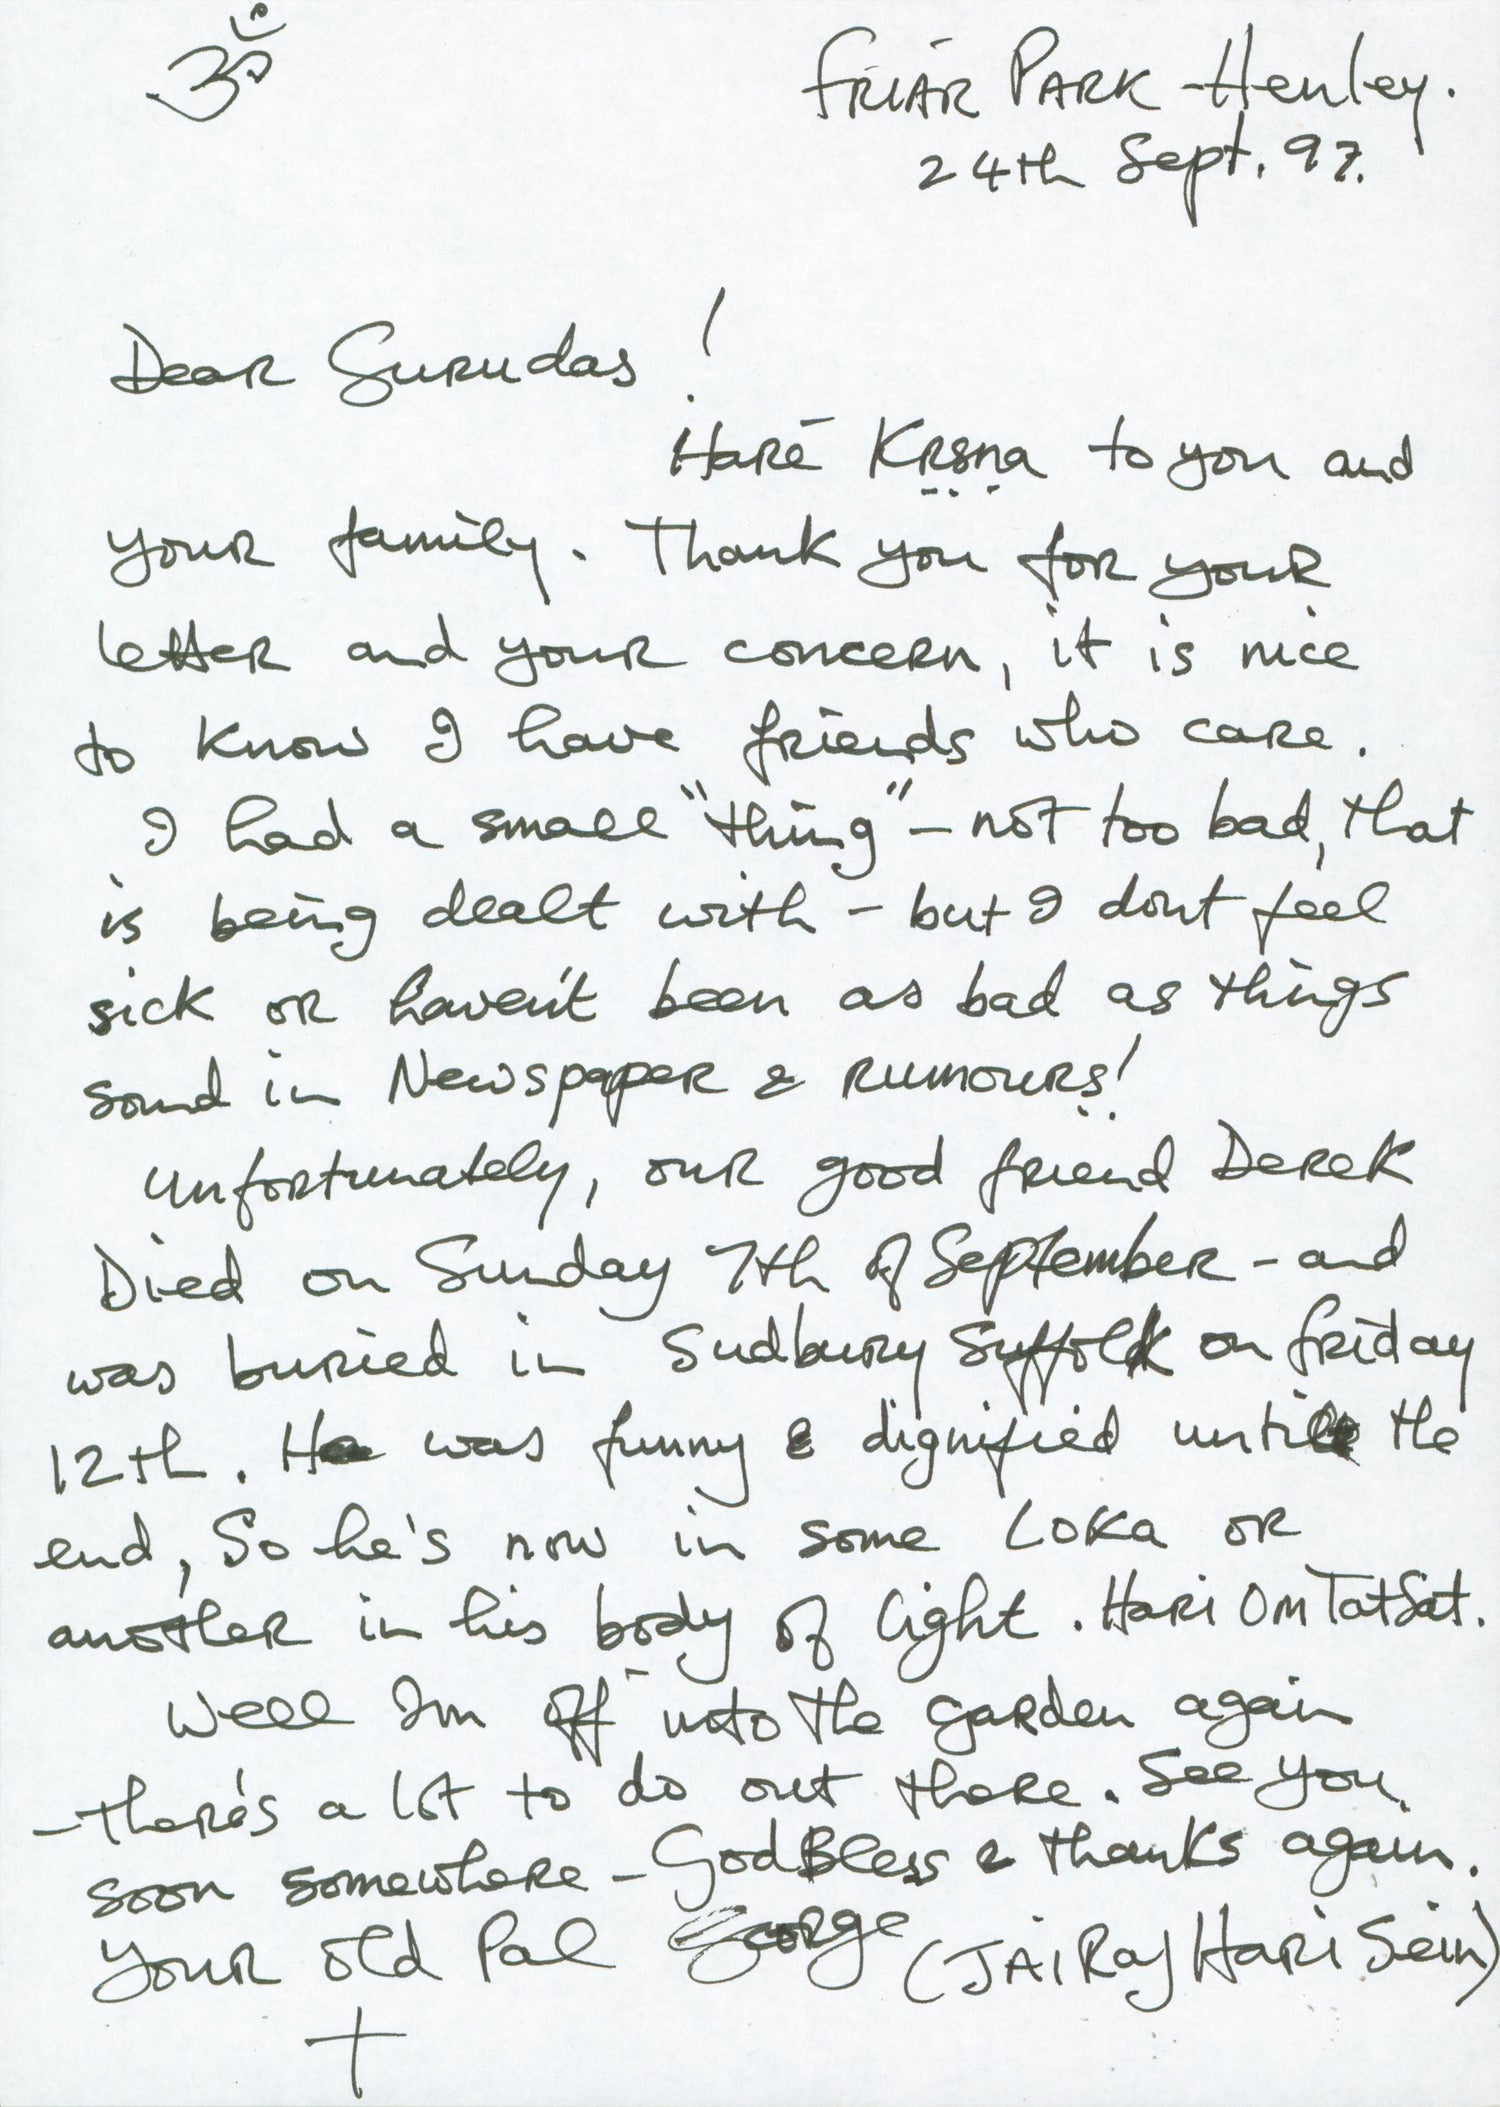 ॐ
FRIAR PARK - Henley.
24th Sept. 97.
Dear Gurudas!
Harē Kṛṣṇa to you and
your family. Thank you for your
letter and your concern, it is nice
to know I have friends who care.
I had a small "thing" - not too bad, that
is being dealt with - but I dont feel
sick or haven't been as bad as things
sound in Newspaper & rumours!
Unfortunately, our good friend Derek
Died on Sunday 7th of September - and
was buried in Sudbury Suffolk on friday
12th. He was funny & dignified until the
end, So he's now in some Loka or
another in his body of light. Hari Om Tat Sat.
Well Im off into the garden again
- there's a lot to do out there. See you
soon somewhere - God Bless & thanks again.
Your old Pal George (JAi Raj Hari Sein)
+